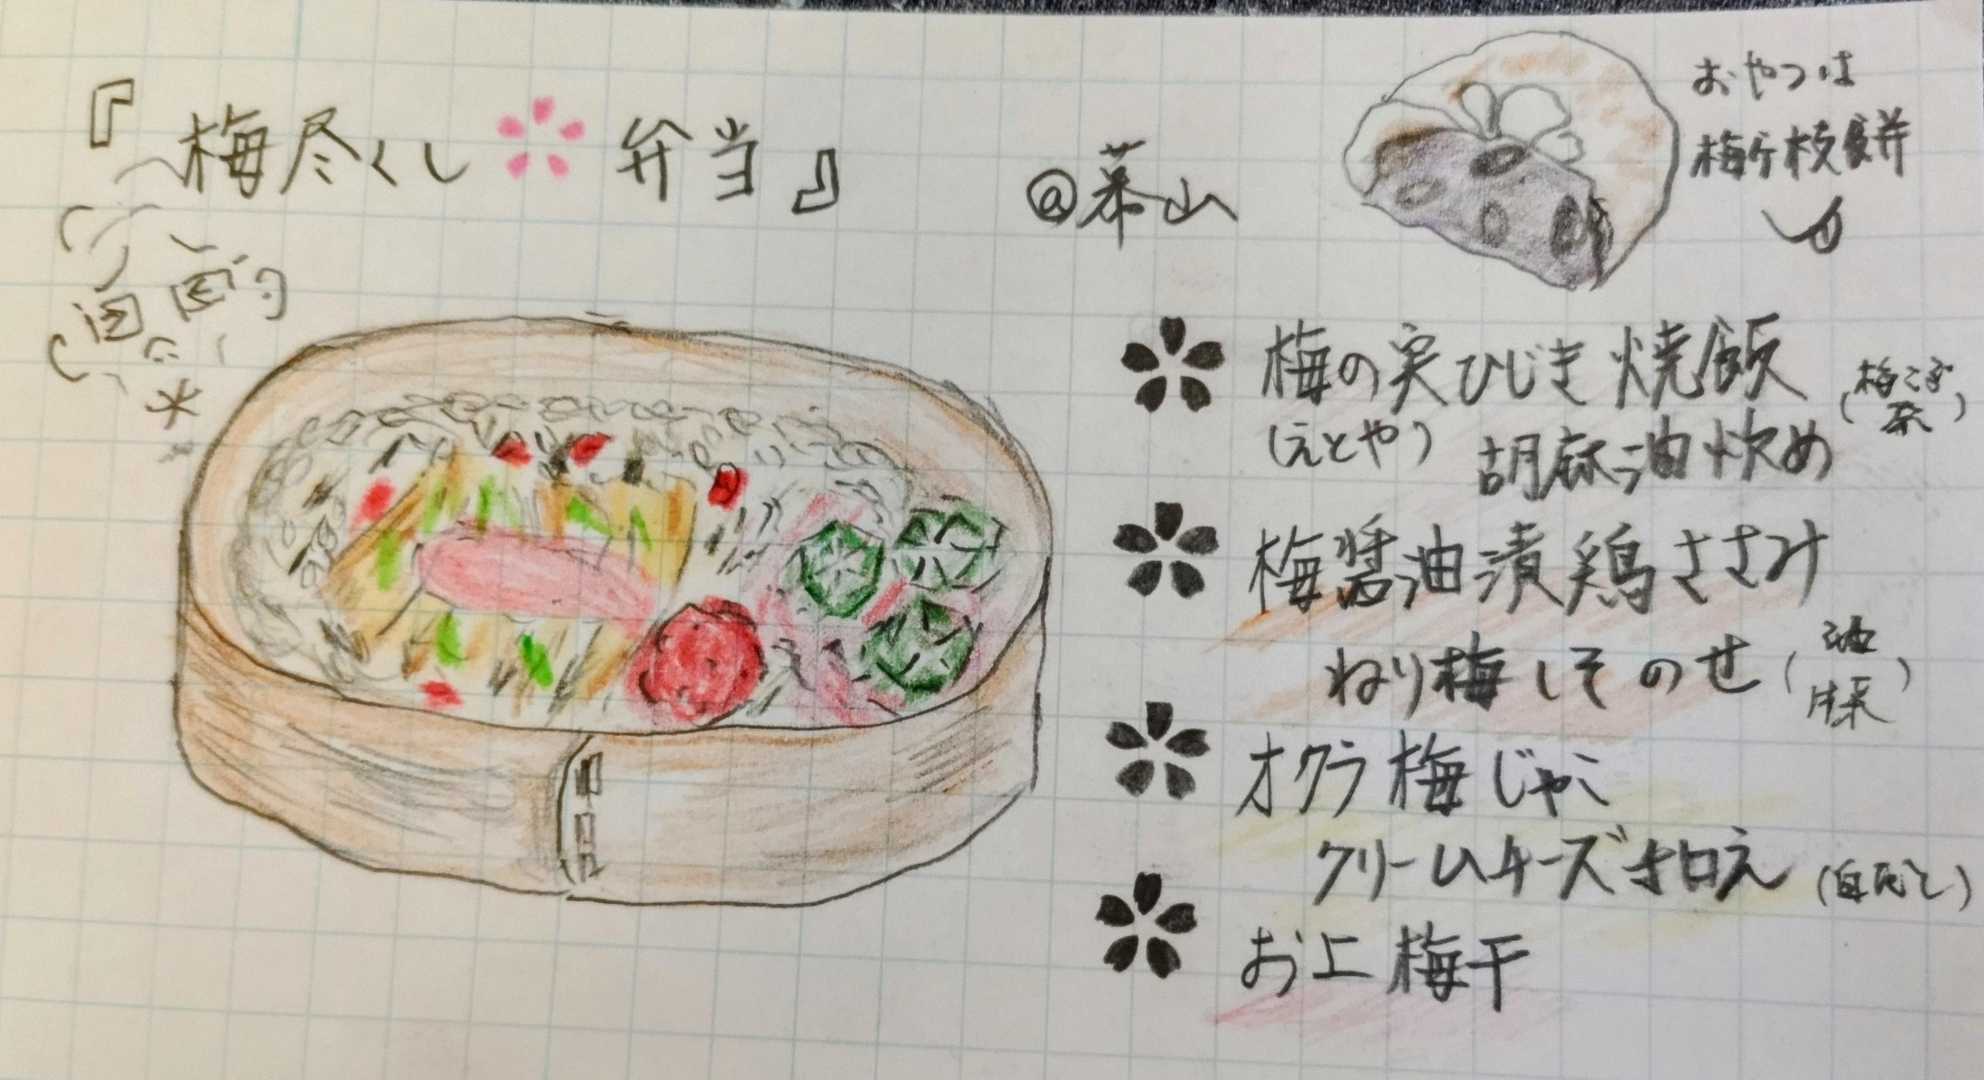 『梅尽くし弁当』
@幕山
おやつは
梅ヶ枝餅
梅の実ひじき焼飯
(えとや)
胡麻油炊め
(梅こぶ茶)
梅醤油漬鶏ささみ
ねり梅しそのせ
オクラ梅じゃこ
クリームチーズ和え
お上梅干